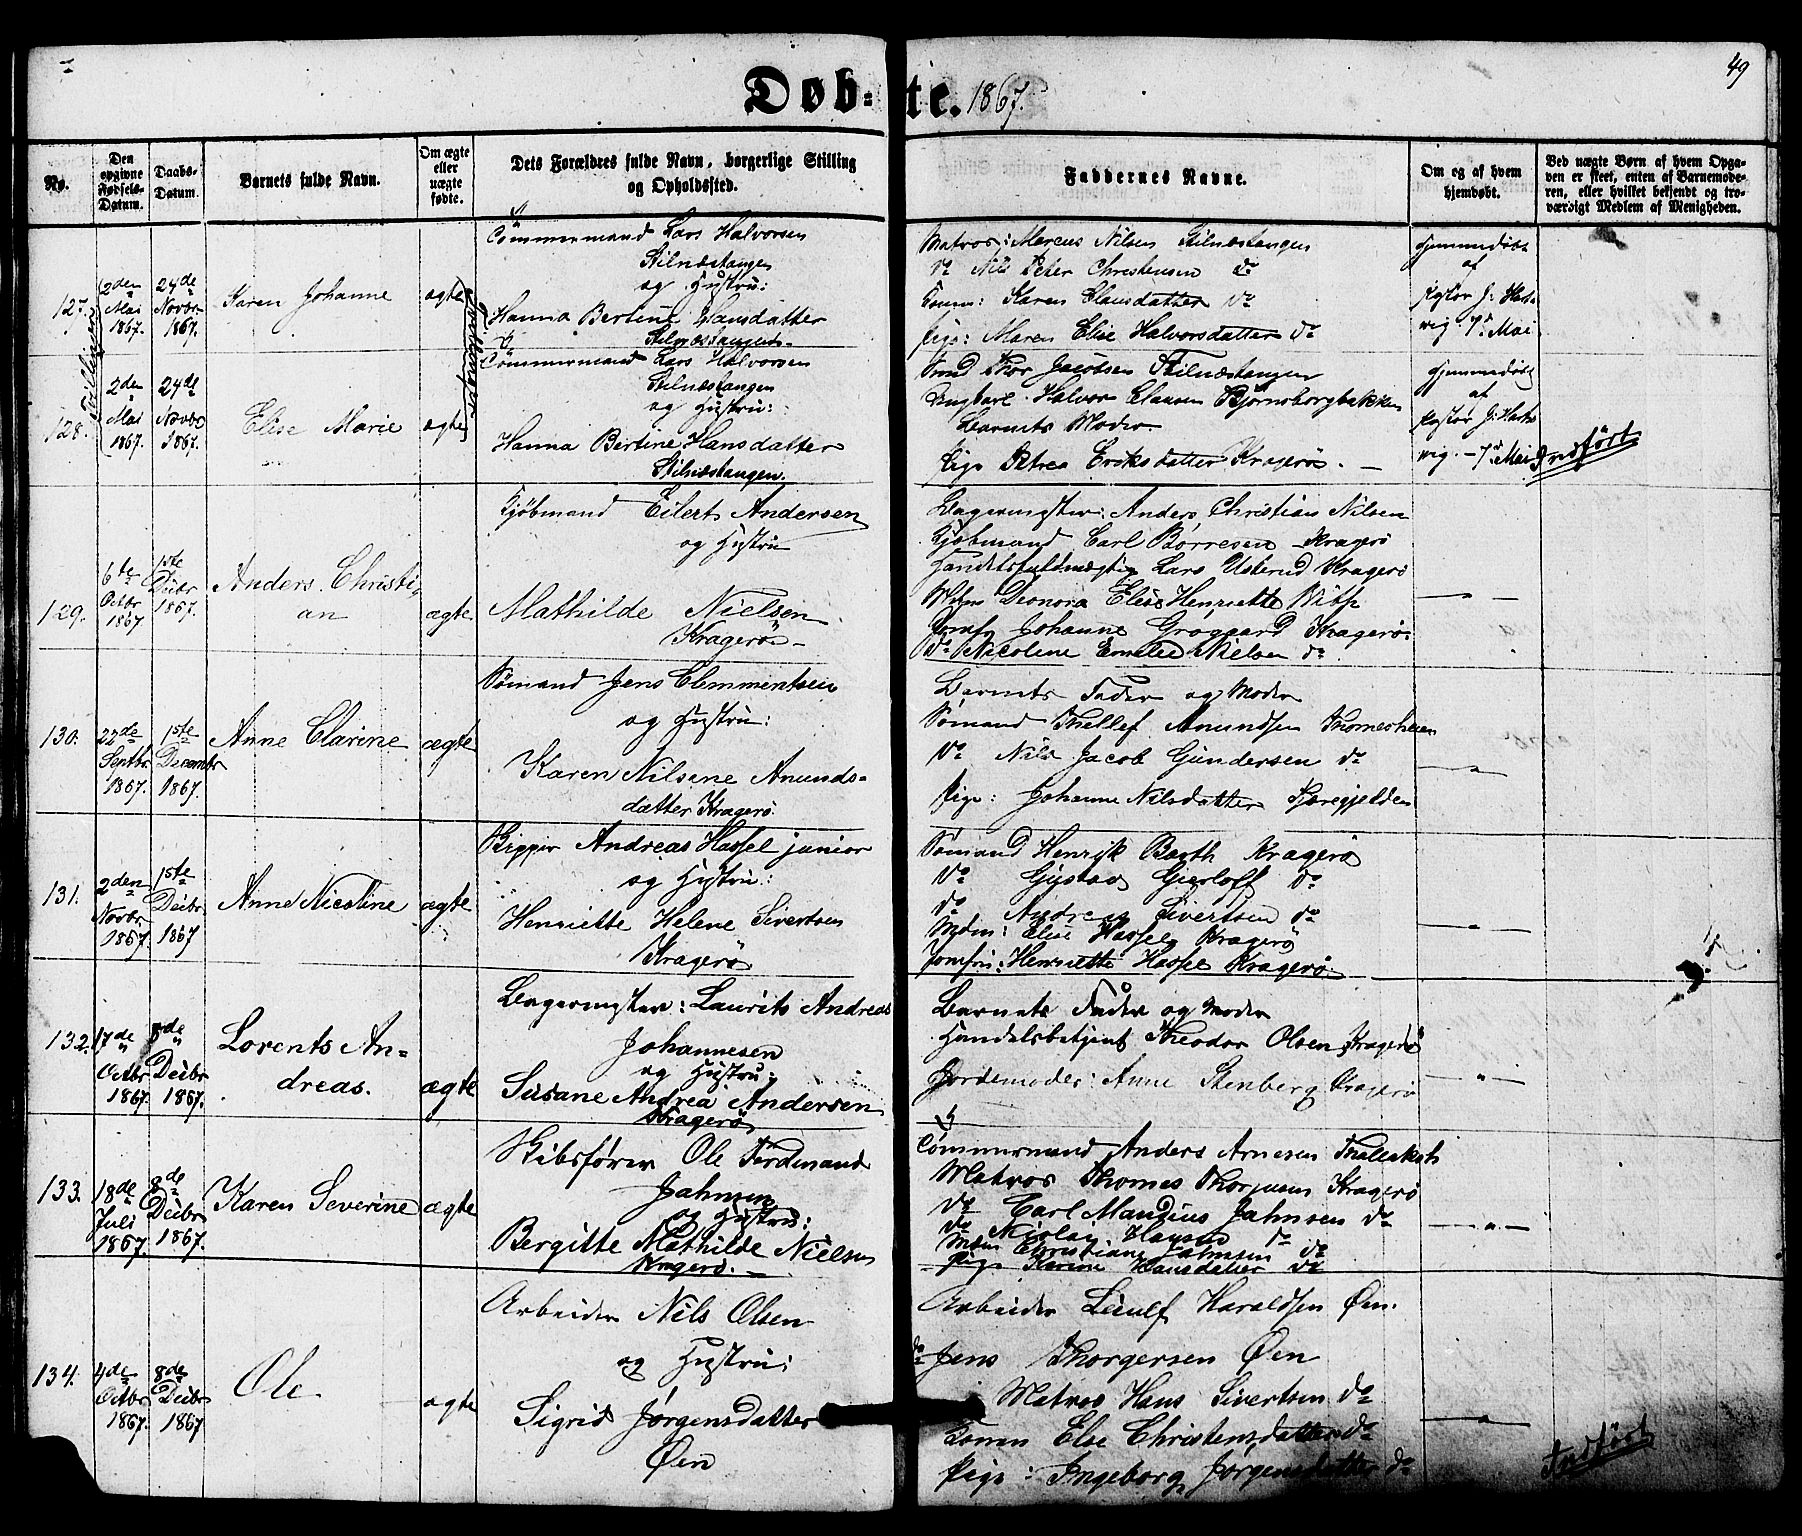 49
Døb-te. 1867.
No.
Den opgivne Fødsels-Datum.
Daabs-Datum.
Barnets fulde Navn.
Om ægte eller uægte fødte.
Dets Forældres fulde Navn, borgerlige Stilling og Opholdssted.
Faddernes Navne.
Om og af hvem hjemdøbt.
Ved uægte Børn af hvem Opga-
ven er skeet, enten af Barnemode-
ren, eller hvilket bekjendt og tro-
værdigt Medlem af Menigheden.
127.
2den Mai 1867.
24de Novbr 1867.
Karen Johanne
ægte
Tømmermand Lars Halvorsen
Stilnæstangen
og Hustru:
Hanna Bertine Hansdatter
Stilnæstangen.
Matros: Marcus Nilsen Stilnæstangen
do Nils Peter Christensen do
Konen: Karen Clausdatter do
Pige: Maren Elise Halvorsdatter do
hjemmedøbt
af
Pastor J:
vig. 7de Mai
Tvillinger
128.
2den Mai 1867.
24de Novbr 1867.
Elise Marie
ægte
Tømmermand Lars Halvorsen
Stilnæstangen
og Hustru:
Hanna Bertine Hansdatter
Stilnæstangen.
Jacobsen Stilnæstangen
Ungkarl Halvor Clausen Bjørneborgbakken
Barnets Moder
Pige Petrea Eriksdatter Kragerö.
hjemmedøbt
af
Pastor J:
vig. - 7de Mai
Indført
129.
6te Octbr 1867
1ste Decbr 1867.
Anders Christi-
an
ægte
Kjøbmand Eilert Andersen
og Hustru
Mathilde Nielsen
Kragerö
Bagermester: Anders Christian Nilsen
Kjøbmand Carl Börresen - Kragerö
Handelsfuldmægtig Lars Usterud Kragerö
Mdm Leonora Elise Henriette
Jomfr Johanne Grogaard Kragerö
do Nicoline Emelie Nielsen do
130.
22de Septbr 1867.
1ste Decembr 1867.
Anne Clarine
ægte
Sømand Jens Clemmentsen
og Hustru:
Karen Nilsine Anunds-
datter Kragerö.
Barnets Fader og Moder
Sømand Thellef Anundsen Thomesheien
do Nils Jacob Gundersen do
Pige: Johanne Nilsdatter
131.
2den Novbr 1867
1ste Decbr 1867
Anne Nicoline
ægte
Skipper Andreas Hassel junior
og Hustru:
Henriette Helene Sivertsen
Kragerö
Sømand Henrik Barth Kragerö
do Gustav Gierloff do
do Andreas Sivertsen do
Mdm: Elise Hassel Kragerö
Jomfru: Henriette Hassel Kragerö
132.
17de Octbr 1867.
8de Decbr 1867.
Lorents An-
dreas.
ægte
Bagermester: Laurits Andreas
Johannesen
og Hustru:
Susane Andrea Andersen
Kragerö
Barnets Fader og Moder
Handelsbetjent Theodor Olsen, Kragerö
Jordemoder: Anne Stenberg Kragerö
133.
18de Juli 1867.
8de Decbr 1867.
Karen Severine
ægte
Skibsförer Ole Ferdinand
Jahnsen
og Hustru:
Bergitte Mathilde Nielsen
Kragerö.
Tømmermand Anders Arnesen
Matros Thomes Thorjusen Kragerö
do Carl Maudius Jahnsen do
do Nicolai Hansen do
Mdm Christiane Jahnsen do
Pige Karine Hansdatter do
134.
4de Octbr 1867.
8de Decbr 1867
Ole.
ægte
Arbeider Nils Olsen
og Hustru:
Sigrid Jørgensdatter
Øen
Arbeider Lieulf Haraldsen Øen.
do Jens Thorgersen Øen
Matros Hans Sivertsen do
Konen Else Christensdatter do
Pige: Ingeborg Jørgensdatter do
Indført